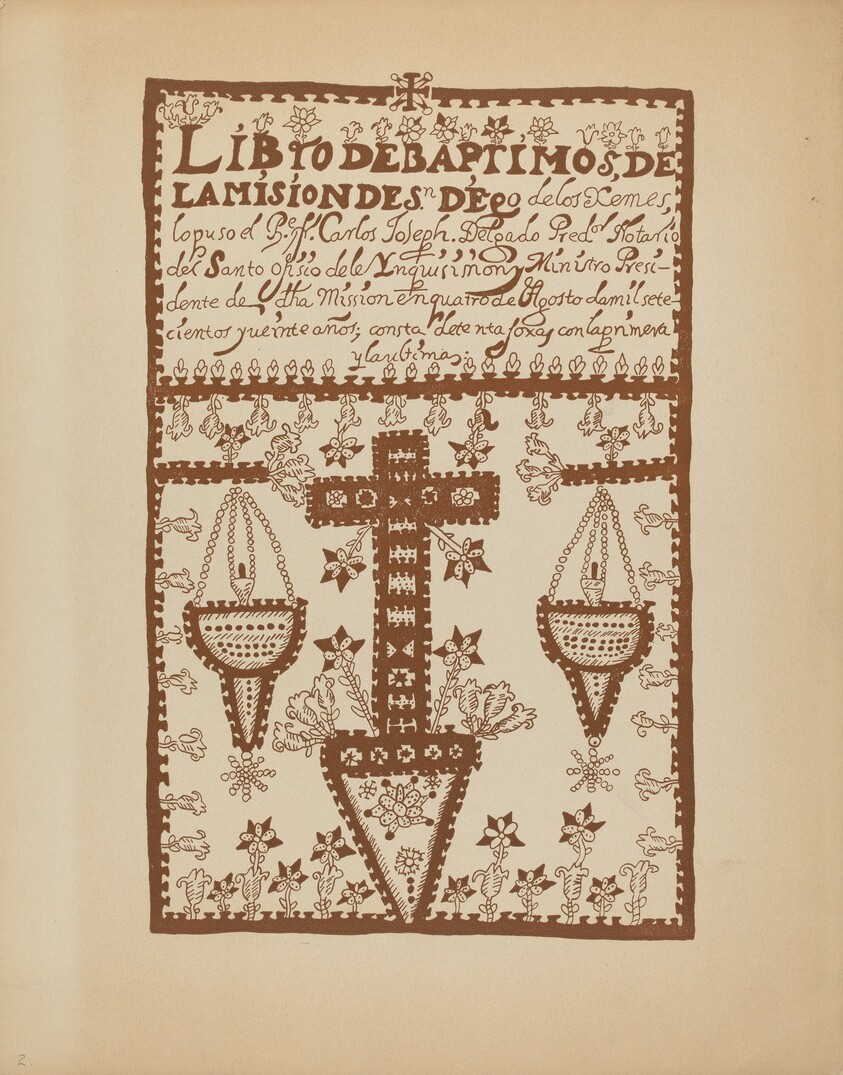 LIBrO DE BAPTIMOS, DE
LA MISION DE S.n DIEgo de los Xemes,
lo puso el P.e fr. Carlos Joseph. Delgado Pred.or Notario
del Santo ofisio de le Ynquisision, y Ministro Presi-
dente de dha Mission en quatro de Agosto da mil sete-
cientos y ueinte años; consta de tenta foxas con la primera
y la ultima;
2